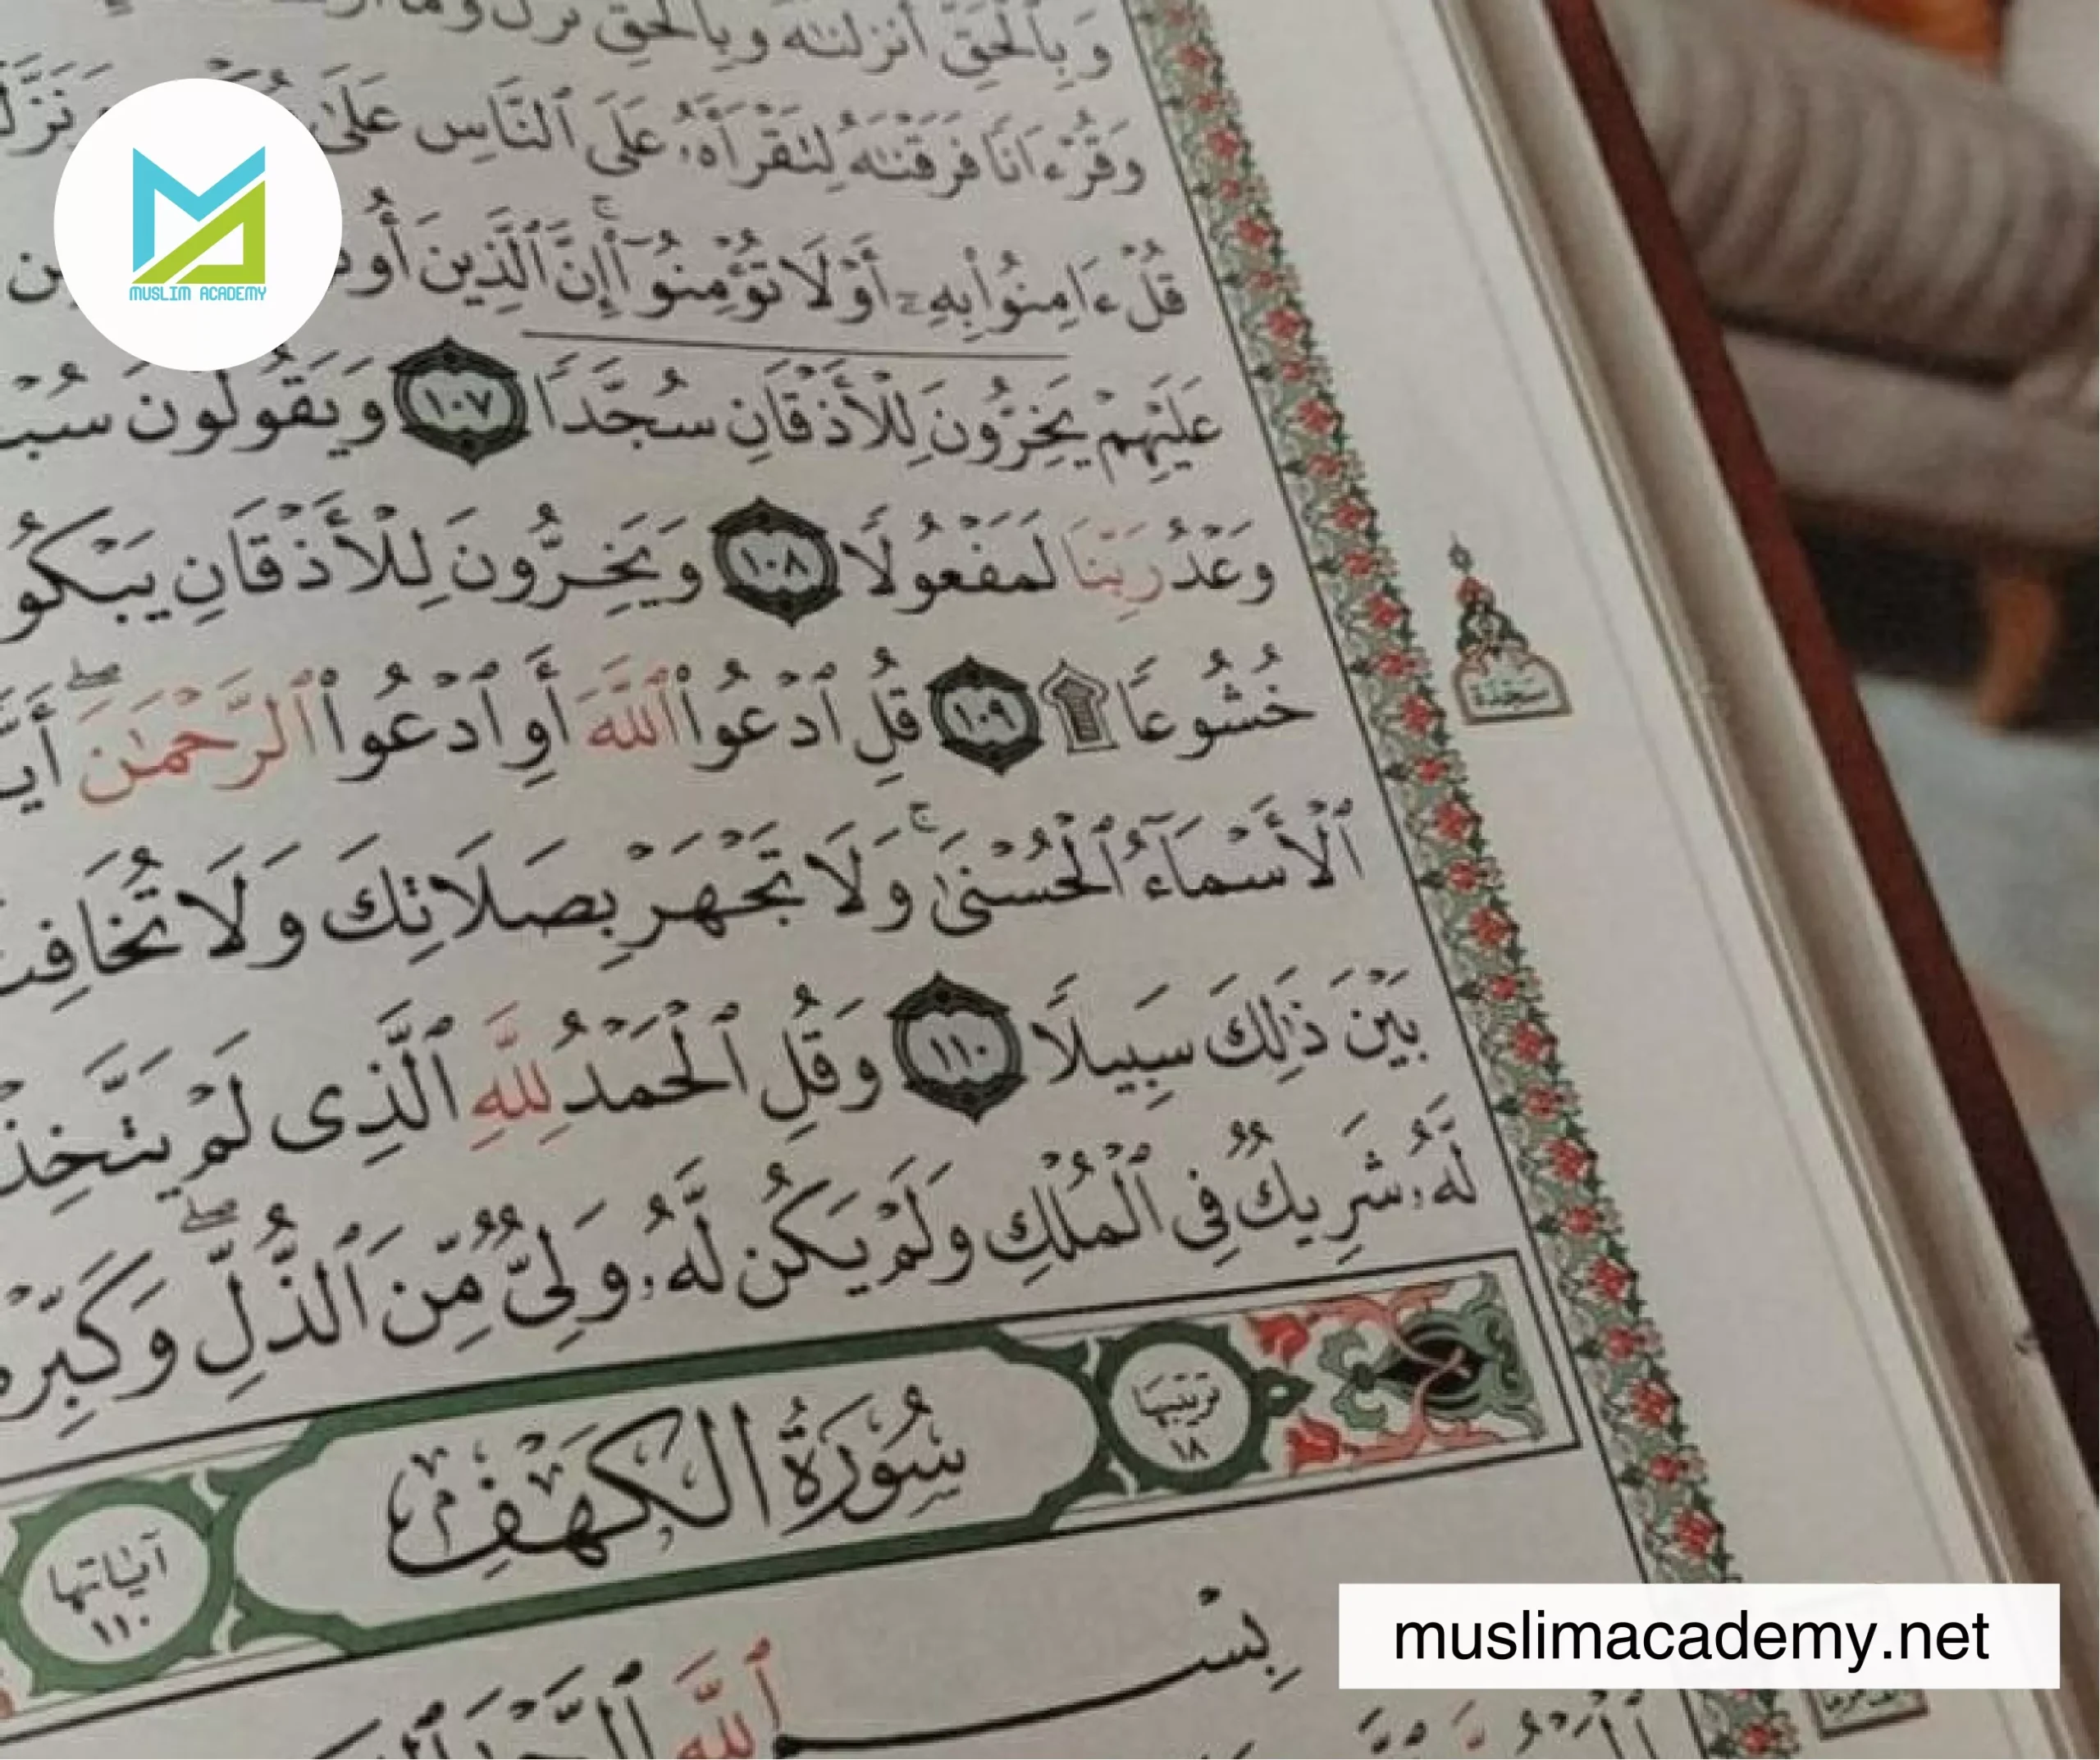 وَبِالْحَقِّ أَنزَلْنَٰهُ وَبِالْحَقِّ نَزَلَ وَمَا
وَقُرْءَانًا فَرَقْنَٰهُ لِتَقْرَأَهُۥ عَلَى ٱلنَّاسِ عَلَىٰ
قُلْ ءَامِنُوا۟ بِهِۦٓ أَوْ لَا تُؤْمِنُوٓا۟ ۚ إِنَّ ٱلَّذِينَ
عَلَيْهِمْ يَخِرُّونَ لِلْأَذْقَانِ سُجَّدًا ١٠٧ وَيَقُولُونَ
وَعْدُ رَبِّنَا لَمَفْعُولًا ١٠٨ وَيَخِرُّونَ لِلْأَذْقَانِ
خُشُوعًا ۩ ١٠٩ قُلِ ٱدْعُوا۟ ٱللَّهَ أَوِ ٱدْعُوا۟ ٱلرَّحْمَٰنَ ۖ
سَجْدَة
ٱلْأَسْمَآءُ ٱلْحُسْنَىٰ ۚ وَلَا تَجْهَرْ بِصَلَاتِكَ وَلَا
بَيْنَ ذَٰلِكَ سَبِيلًا ١١٠ وَقُلِ ٱلْحَمْدُ لِلَّهِ ٱلَّذِى لَمْ يَتَّخِذْ
لَّهُۥ شَرِيكٌ فِى ٱلْمُلْكِ وَلَمْ يَكُن لَّهُۥ وَلِىٌّ مِّنَ ٱلذُّلِّ ۖ
ترتيبها ١٨
سُورَةُ الكَهْفِ
آياتها ١١٠
بِسْمِ ٱللَّهِ
MUSLIM ACADEMY
muslimacademy.net